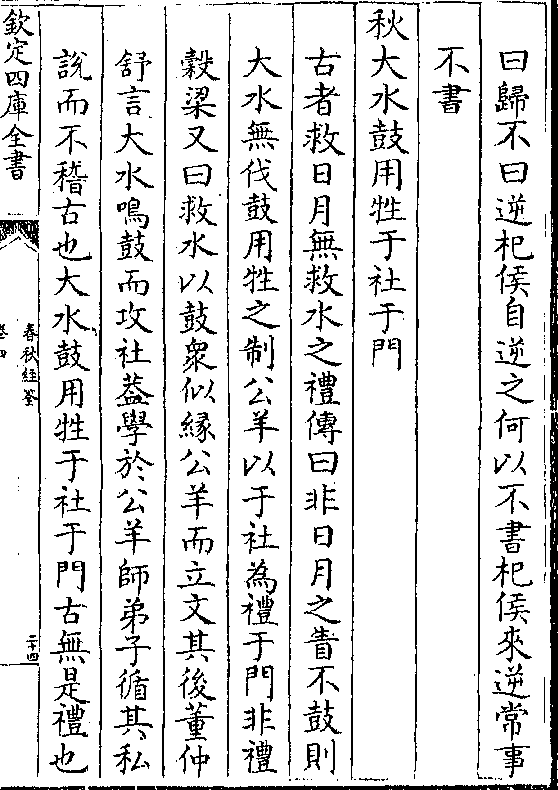 曰歸不曰逆杞侯自逆之何以不書杞侯來逆常事
不書
秋大水鼓用牲于社于門
古者救日月無救水之禮傳曰非日月之眚不鼓則
大水無伐鼓用牲之制公羊以于社為禮于門非禮
穀梁又曰救水以鼓衆似緣公羊而立文其後董仲
舒言大水鳴鼓而攻社蓋學於公羊師弟子循其私
說而不稽古也大水鼓用牲于社于門古無是禮也
欽定四庫全書
春秋經筌
卷四
二十四